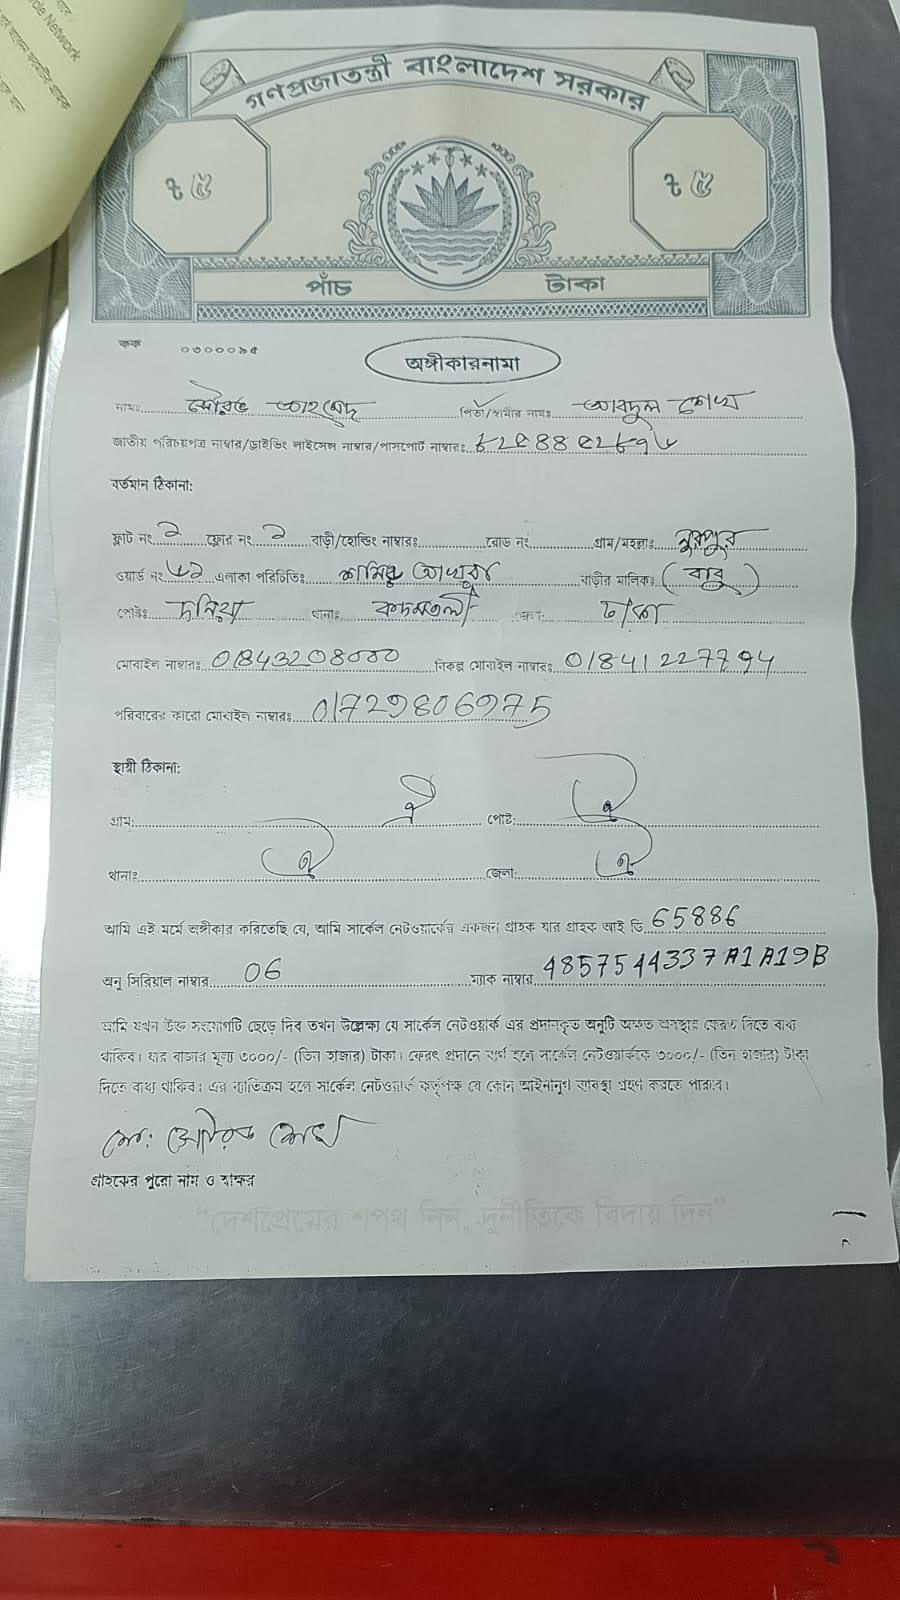 ble Network
গণপ্রজাতন্ত্রী বাংলাদেশ সরকার
৳ ৫ ৳ ৫
পাঁচ টাকা
কক
অঙ্গীকারনামা
নামঃ সৌরভ আহম্মেদ পিতা/স্বামীর নামঃ আবদুল শেখ
জাতীয় পরিচয়পত্র নাম্বার/ড্রাইভিং লাইসেন্স নাম্বার/পাসপোর্ট নাম্বারঃ
বর্তমান ঠিকানা:
ফ্লাট নং ২ ফ্লোর নং ২ বাড়ী/হোল্ডিং নাম্বারঃ রোড নং গ্রাম/মহল্লাঃ নুরপুর
ওয়ার্ড নং ৬২ এলাকা পরিচিতিঃ বাড়ীর মালিকঃ (বাবু)
পোষ্টঃ দনিয়া থানাঃ কদমতলী জেলাঃ ঢাকা
মোবাইল নাম্বারঃ বিকল্প মোবাইল নাম্বারঃ
পরিবারের কারো মোবাইল নাম্বারঃ 01729806975
স্থায়ী ঠিকানা:
গ্রাম: ঐ পোষ্ট: ঐ
থানাঃ ঐ জেলা: ঐ
আমি এই মর্মে অঙ্গীকার করিতেছি যে, আমি সার্কেল নেটওয়ার্কের একজন গ্রাহক যার গ্রাহক আই ডি 65886
অনু সিরিয়াল নাম্বার 06 ম্যাক নাম্বার 4857544337A1A19B
আমি যখন উক্ত সংযোগটি ছেড়ে দিব তখন উল্লেখ্য যে সার্কেল নেটওয়ার্ক এর প্রদানকৃত অনুটি অক্ষত অবস্থায় ফেরত দিতে বাধ্য
থাকিব। যার বাজার মূল্য ৩০০০/- (তিন হাজার) টাকা। ফেরৎ প্রদানে ব্যর্থ হলে সার্কেল নেটওয়ার্ককে ৩০০০/- (তিন হাজার) টাকা
দিতে বাধ্য থাকিব। এর ব্যতিক্রম হলে সার্কেল নেটওয়ার্ক কর্তৃপক্ষ যে কোন আইনানুগ ব্যবস্থা গ্রহণ করতে পারবে।
মোঃ সৌরভ
গ্রাহকের পুরো নাম ও স্বাক্ষর
“দেশপ্রেমের শপথ নিন, দুর্নীতিকে বিদায় দিন”